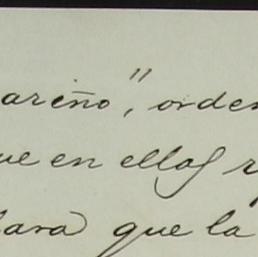 ariño", orden
ue en ellas r
lara que la